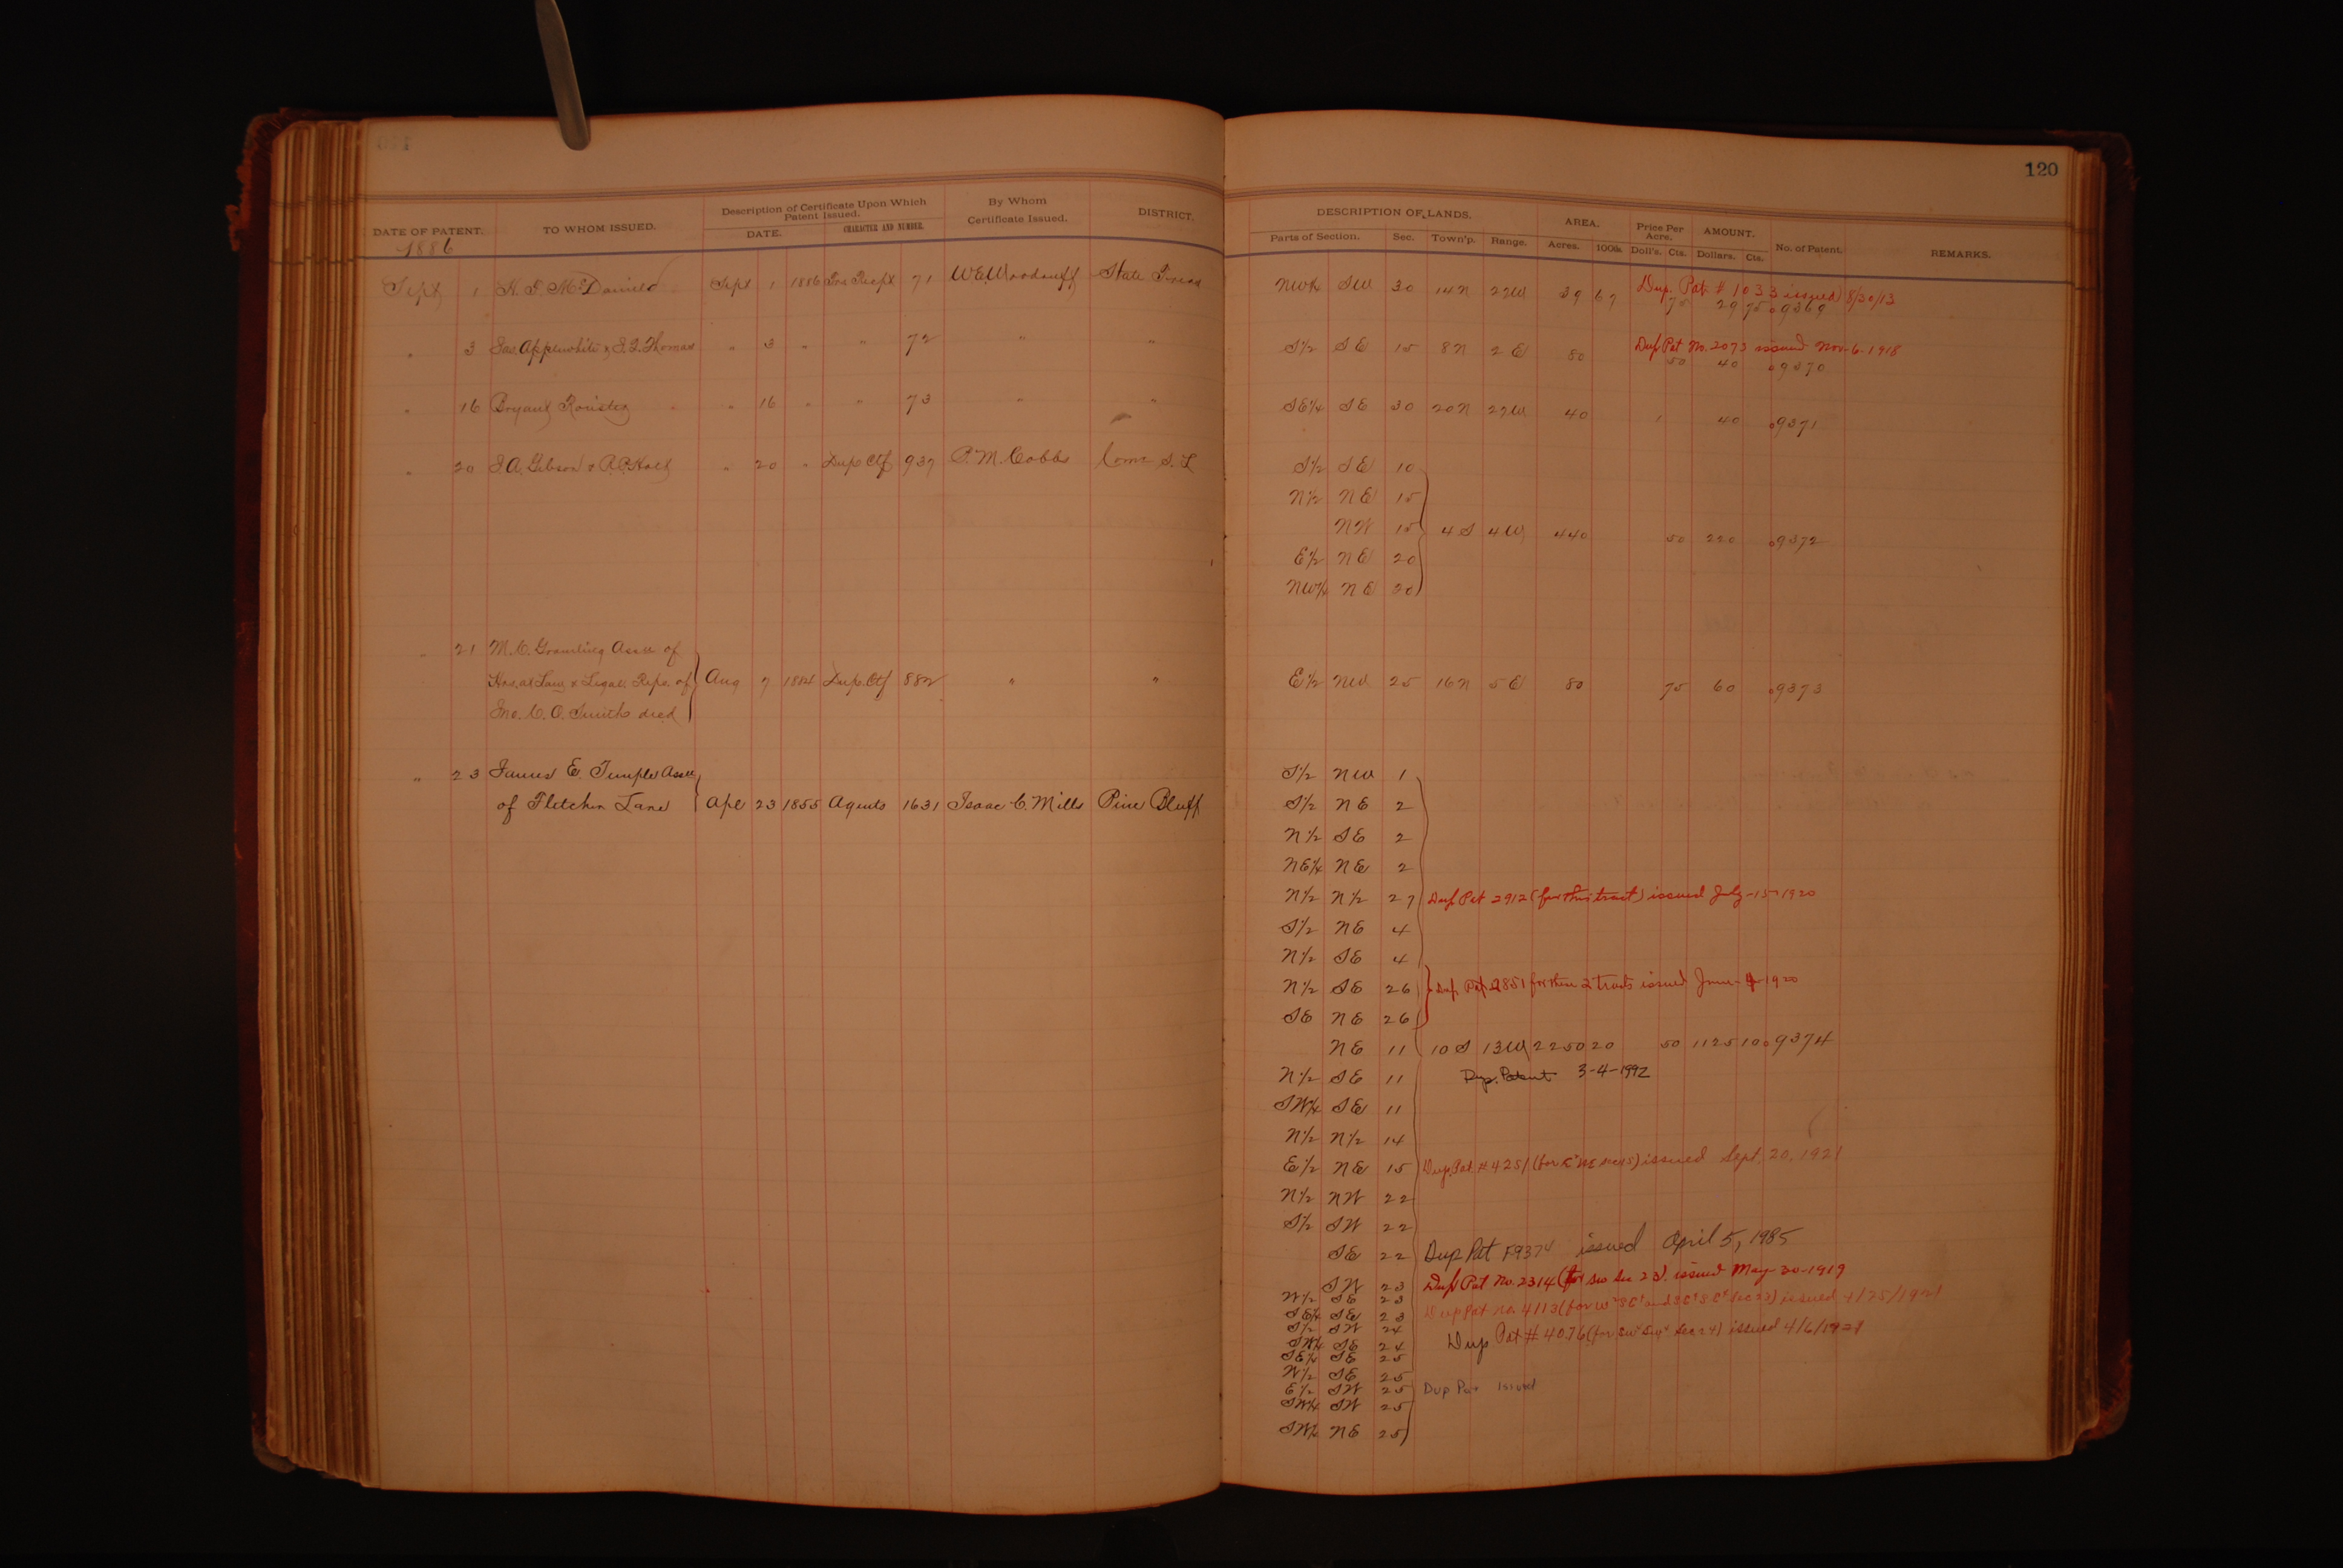 120
DATE OF PATENT. TO WHOM ISSUED. Description of Certificate Upon Which Patent Issued. DATE. CHARACTER AND NUMBER. By Whom Certificate Issued. DISTRICT.
DESCRIPTION OF LANDS. Parts of Section. Sec. Town'p. Range. AREA. Acres. 100ths. Price Per Acre. Doll's. Cts. AMOUNT. Dollars. Cts. No. of Patent. REMARKS.
1886
Dup. Pat # 1033 issued 8/30/13
Sept 1 McDaniel Sept 1 1886 71 W.E. Woodruff State Treas NW¼ SW 30 14N 27W 39 67 75 29 75 09369
Dup Pat No. 2073 issued Nov-6-1918
" 3 Jas. Applewhite & S.L. Thomas " 3 " " 72 " " S½ SE 15 8N 2E 80 50 40 09370
" 16 Bryant Roister " 16 " " 73 " " SE¼ SE 30 20N 27W 40 1 40 09371
" 20 S.A. Gibson & R.P. Holt " 20 " Dup Ctf 937 P.M. Cobbs Comr S.L S½ SE 10
N½ NE 15
NW 15 4S 4W 440 50 220 09372
E½ NE 20
NW¼ NE 20
" 21 M.C. Gramling Assee of
Hrs. at Law & Legal Reps. of Aug 7 1884 Dup. Ctf 882 " " E½ NW 25 16N 5E 80 75 60 09373
Jno. C.O. Smith decd
" 23 James E. Temple Assee S½ NW 1
of Fletcher Lane Apl 23 1855 Agents 1631 Isaac C. Mills Pine Bluff S½ NE 2
N½ SE 2
NE¼ NE 2
N½ N½ 27 Dup Pat 2912 (for this tract) issued July-15-1920
S½ NE 4
N½ SE 4
N½ SE 26 Dup. Pat 2851 for these 2 tracts issued June-4-1920
SE NE 26
NE 11 10S 13W 2250 20 50 1125 10 09374
N½ SE 11 Dup. Patent 3-4-1992
SW¼ SE 11
N½ N½ 14
E½ NE 15 Dup. Pat. # 4251 (for E² NE sec 15) issued Sept. 20, 1921
N½ NW 22
S½ SW 22
SE 22 Dup Pat F9374 issued April 5, 1985
SW 23 Dup Pat No. 2314 (for SW Sec 23) issued May-30-1919
W½ SE 23 Dup Pat No. 4113 (for W² SE⁴ and SE⁴ SE⁴ Sec 23) issued 4/25/1921
SE¼ SE 23
S½ SW 24 Dup Pat # 4076 (for SW⁴ SW⁴ Sec 24) issued 4/6/1921
SW¼ SE 24
SE¼ SE 25
W½ SE 25
E½ SW 25 Dup Pat Issued
SW¼ SW 25
SW¼ NE 25